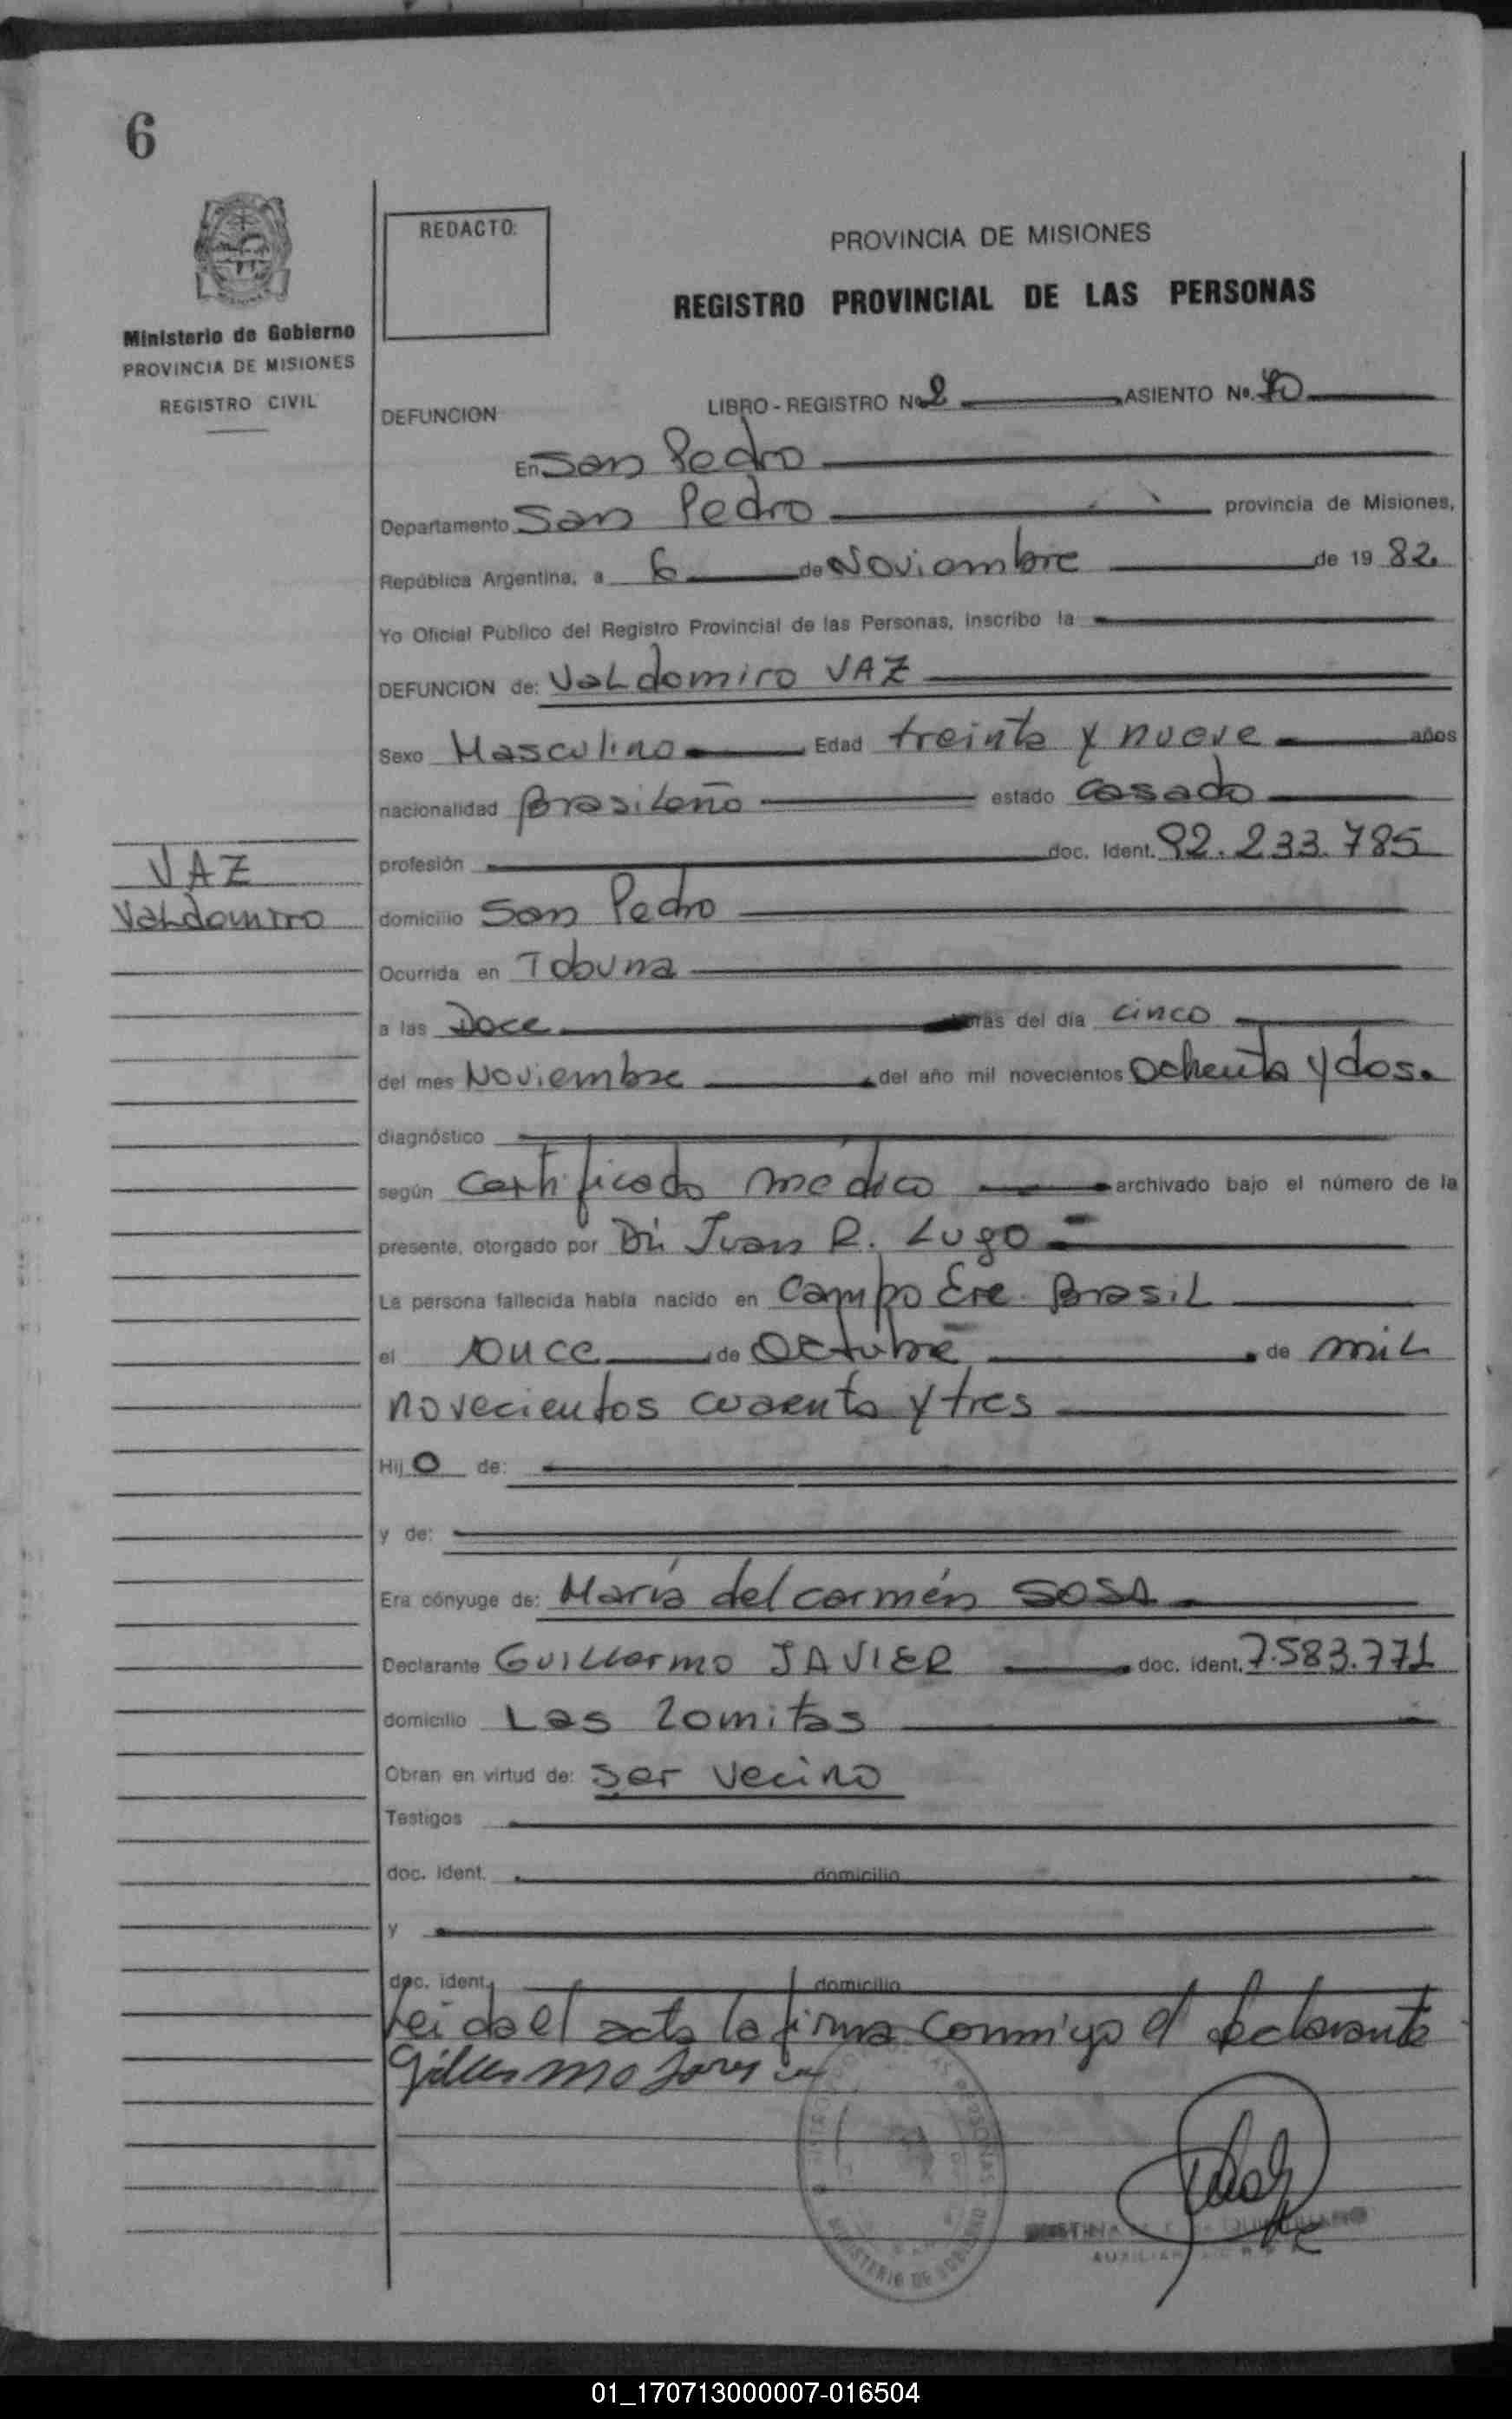 6
REDACTO:
PROVINCIA DE MISIONES
REGISTRO PROVINCIAL DE LAS PERSONAS
Ministerio de Gobierno
PROVINCIA DE MISIONES
REGISTRO CIVIL
DEFUNCION LIBRO - REGISTRO Nº 2 ASIENTO Nº. 40
En San Pedro
Departamento San Pedro provincia de Misiones,
República Argentina, a 6 de Noviembre de 19 82.
Yo Oficial Público del Registro Provincial de las Personas, inscribo la
DEFUNCION de: VaLdomiro VAZ
Sexo Masculino Edad treinta y nueve años
nacionalidad Brasileño estado Casado
profesión doc. Ident. 92.233.785
VAZ
VaLdomiro
domicilio San Pedro
Ocurrida en Tobuna
a las Doce horas del día cinco
del mes Noviembre del año mil novecientos Ochenta y dos.
diagnóstico
según Certificado médico archivado bajo el número de la
presente, otorgado por Dr. Juan R. Lugo
La persona fallecida había nacido en Campo Ere. Brasil
el once de Octubre de mil
novecientos cuarenta y tres
Hij O de:
y de:
Era cónyuge de: María del carmén SOSA
Declarante Guillermo JAVIER doc. ident. 7.583.771
domicilio Las Lomitas
Obran en virtud de: ser vecino
Testigos
doc. ident. domicilio
y
doc. ident. domicilio
Leida el acta la firma conmigo el declarante
MINISTERIO DE GOBIERNO
AUXILIAR
01_170713000007-016504